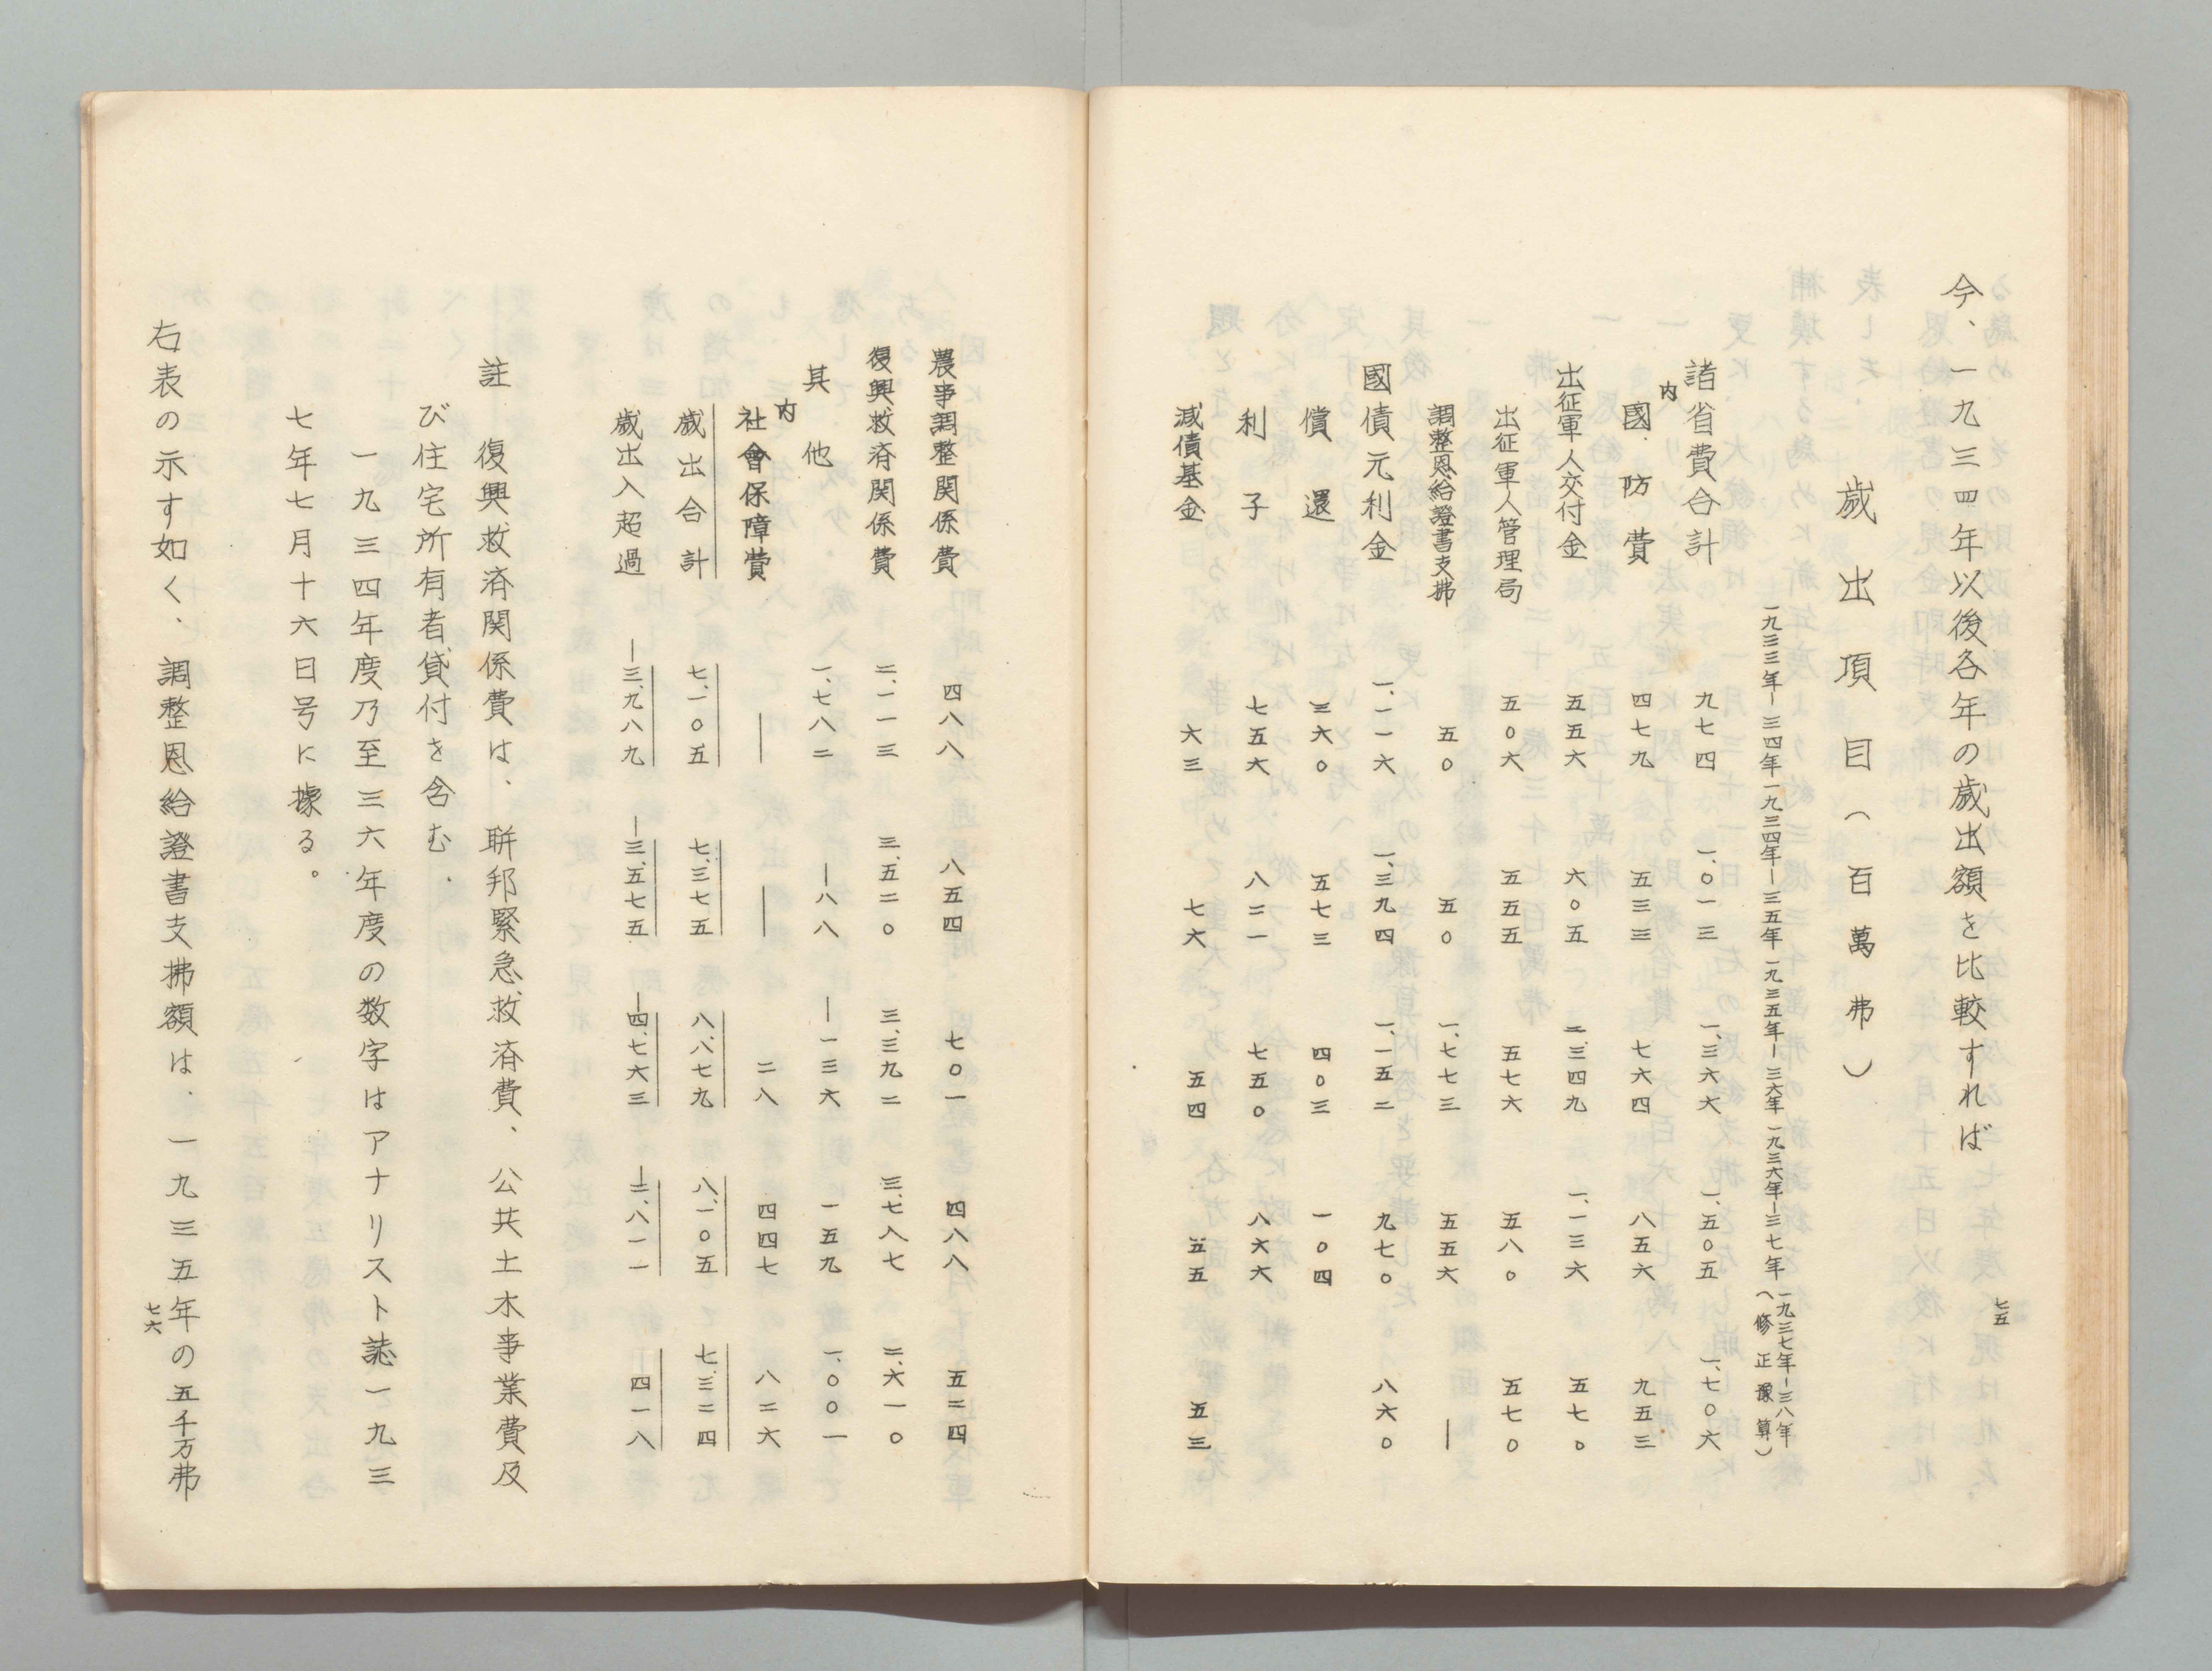 今、一九三四年以後各年の歳出額を比較すれば
歳出項目（百萬弗）
一九三三年―三四年 一九三四年―三五年 一九三五年―三六年 一九三六年―三七年 一九三七年―三八年（修正豫算）
諸省費合計 九七四 一、〇一三 一、三六六 一、五〇五 一、七〇六
内 國防費 四七九 五三三 七六四 八五六 九五三
出征軍人交付金 五五六 六〇五 二、三四九 一、一三六 五七〇
出征軍人管理局 五〇六 五五五 五七六 五八〇 五七〇
調整恩給證書支拂 五〇 五〇 一、七七三 五五六 ―
國債元利金 一、一一六 一、三九四 一、一五二 九七〇 八六〇
償還 三六〇 五七三 四〇三 一〇四
利子 七五六 八二一 七五〇 八六六
減債基金 六三 七六 五四 五五 五三
七五
農事調整関係費 四八八 八五四 七〇一 四八八 五二四
復興救済関係費 二、一一三 三、五二〇 三、三九二 三、七八七 二、六一〇
其他 一、七八二 ―八八 ―一三六 一五九 一、〇〇一
内 社會保障費 ― ― 二八 四四七 八二六
歳出合計 七、一〇五 七、三七五 八、八七九 八、一〇五 七、三二四
歳出入超過 ―三、九八九 ―三、五七五 ―四、七六三 ―二、八一一 四一八
註 復興救済関係費は、聨邦緊急救済費、公共土木事業費及
び住宅所有者貸付を含む.
一九三四年度乃至三六年度の数字はアナリスト誌一九三
七年七月十六日号に據る。
右表の示す如く、調整恩給證書支拂額は、一九三五年の五千万弗
七六